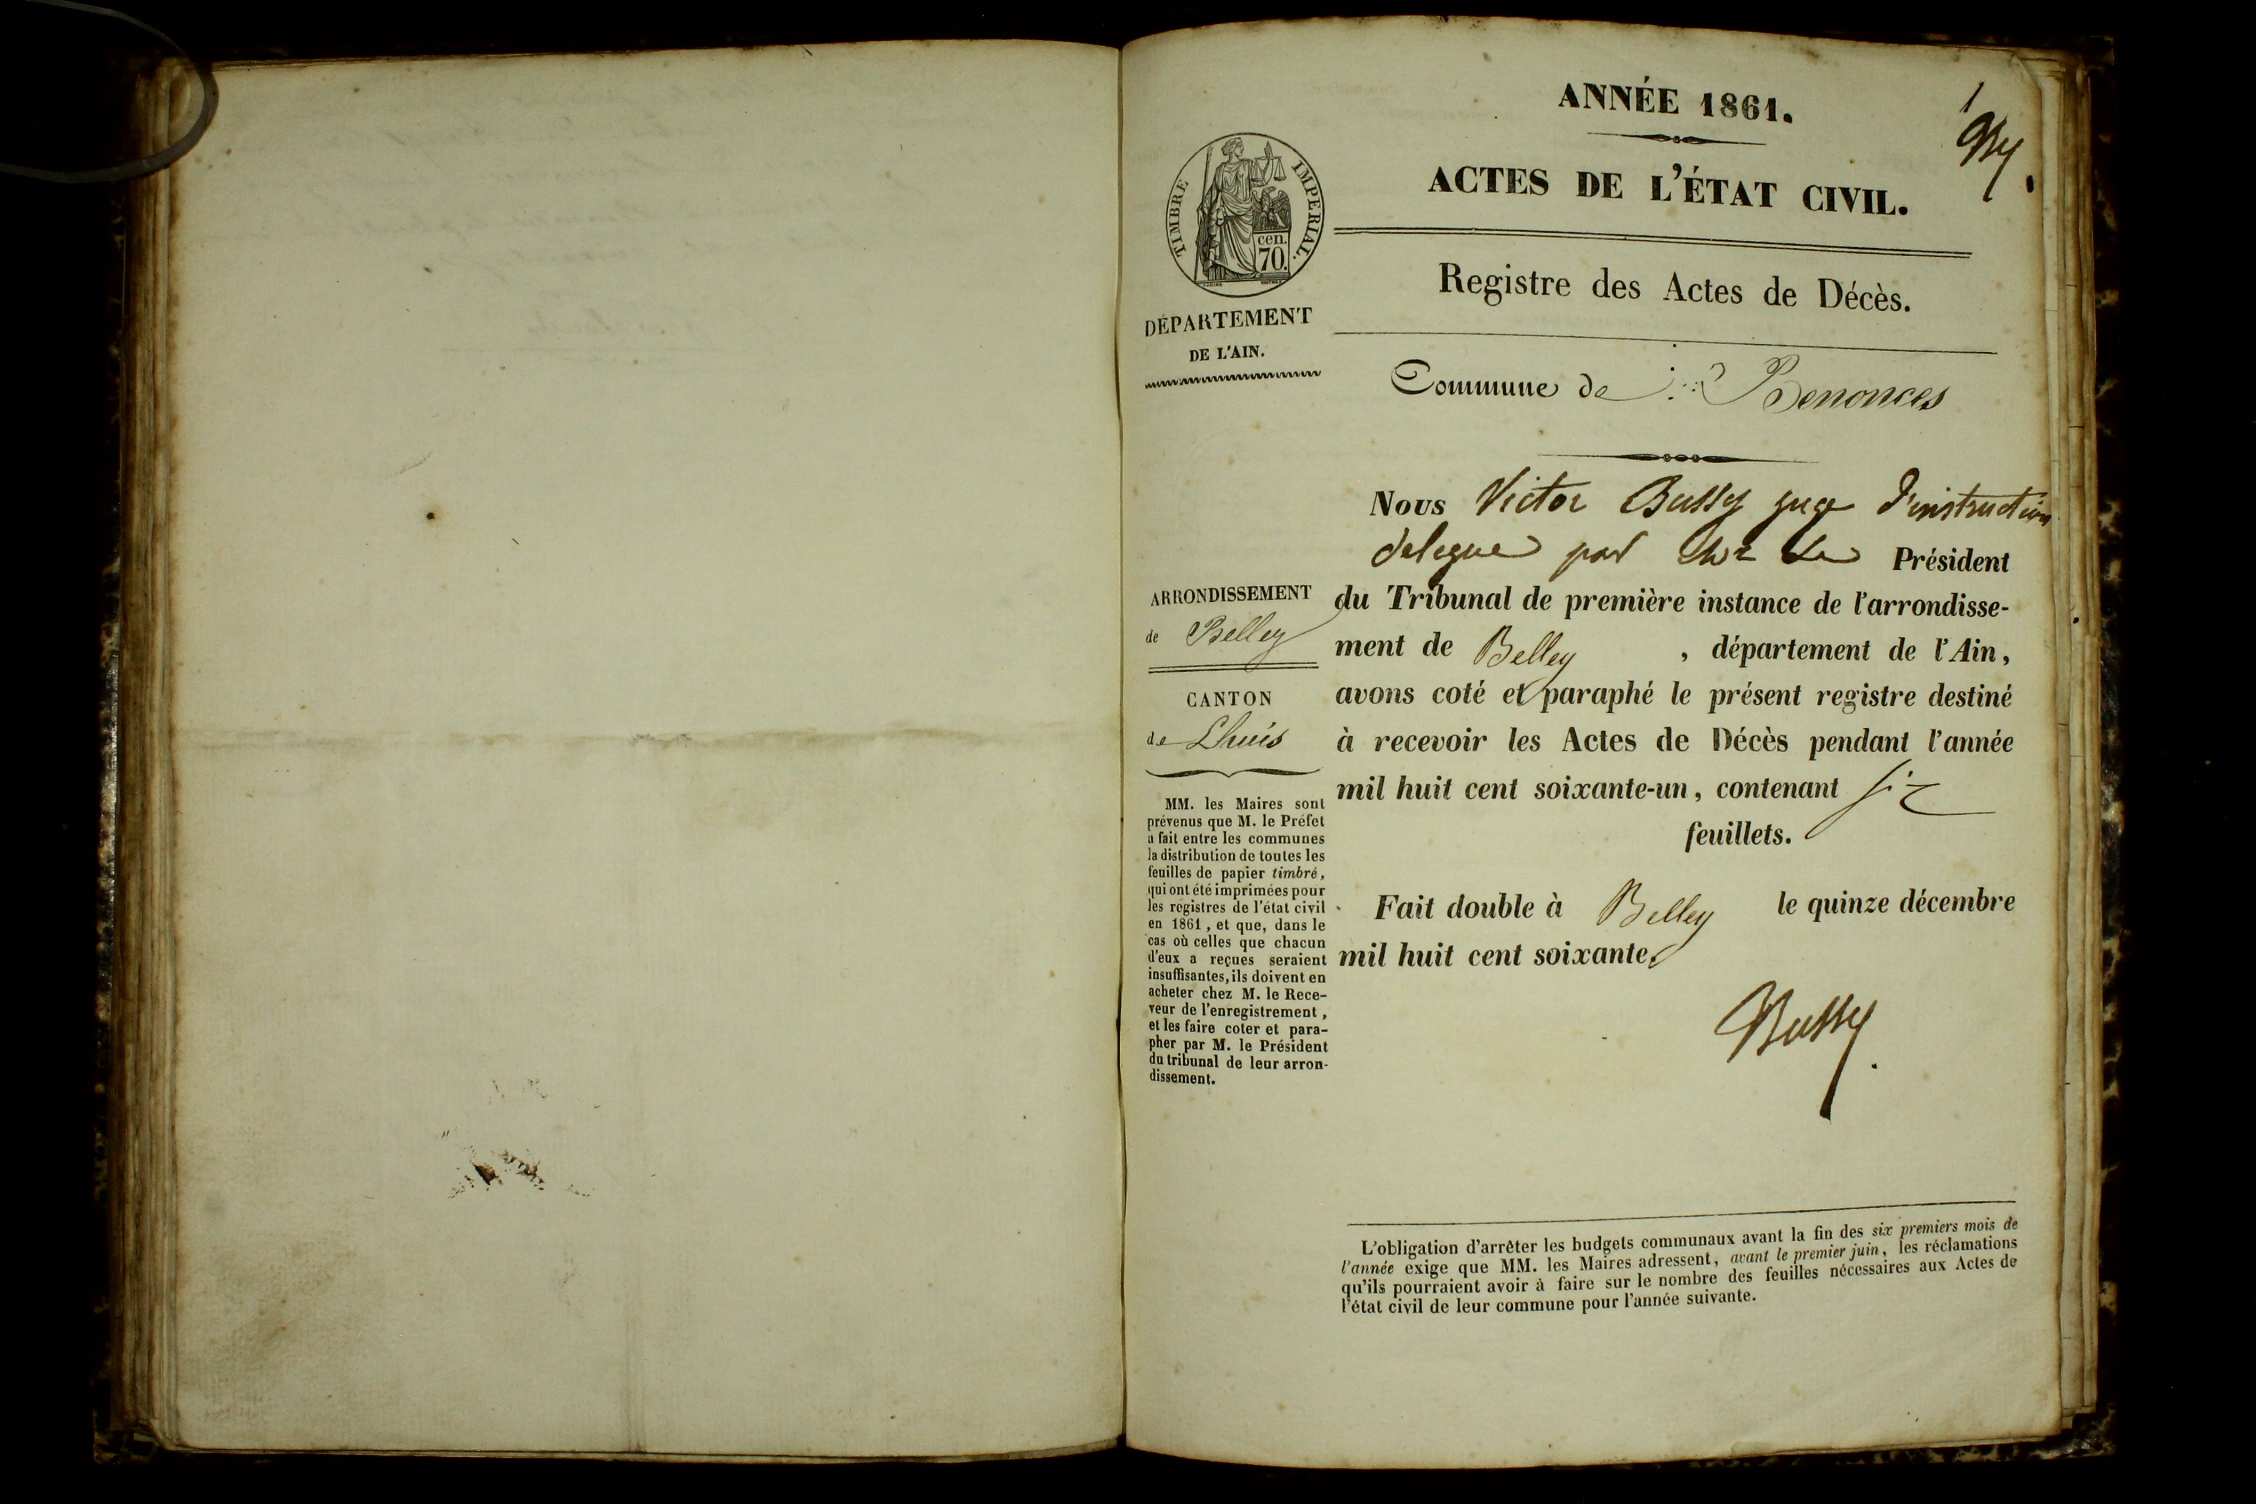 ANNÉE 1861.
1
By
ACTES DE L'ÉTAT CIVIL.
TIMBRE IMPERIAL.
cen.
70.
Registre des Actes de Décès.
DÉPARTEMENT
DE L'AIN.
Commune de Benonces
Nous Victor Bussy juge d'instruction
delegue par Mr le Président
du Tribunal de première instance de l'arrondisse-
ment de Belley , département de l'Ain,
avons coté et paraphé le présent registre destiné
à recevoir les Actes de Décès pendant l'année
mil huit cent soixante-un, contenant six
feuillets.
Fait double à Belley le quinze décembre
mil huit cent soixante.
Bussy
ARRONDISSEMENT
de Belley
CANTON
de Lhuis
MM. les Maires sont
prévenus que M. le Préfet
a fait entre les communes
la distribution de toutes les
feuilles de papier timbré,
qui ont été imprimées pour
les registres de l'état civil
en 1861, et que, dans le
cas où celles que chacun
d'eux a reçues seraient
insuffisantes, ils doivent en
acheter chez M. le Rece-
veur de l'enregistrement,
et les faire coter et para-
pher par M. le Président
du tribunal de leur arron-
dissement.
L'obligation d'arrêter les budgets communaux avant la fin des six premiers mois de
l'année exige que MM. les Maires adressent, avant le premier juin, les réclamations
qu'ils pourraient avoir à faire sur le nombre des feuilles nécessaires aux Actes de
l'état civil de leur commune pour l'année suivante.